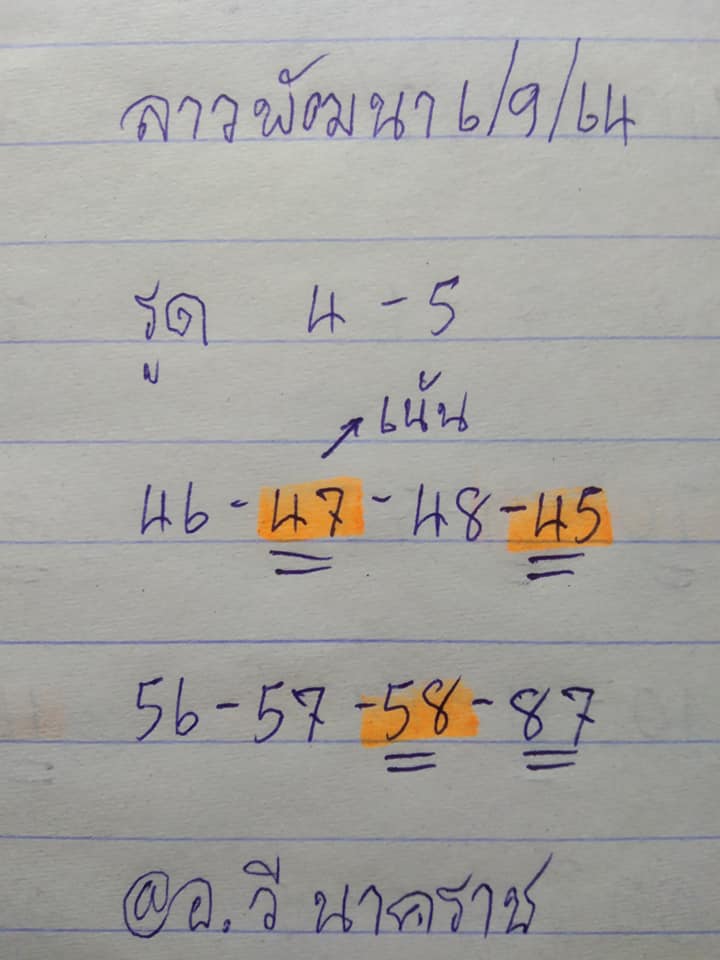 ลาวพัฒนา 6/9/64
รูด 4-5
เน้น
46-47-48-45
56-57-58-87
@อ.วี นาคราช